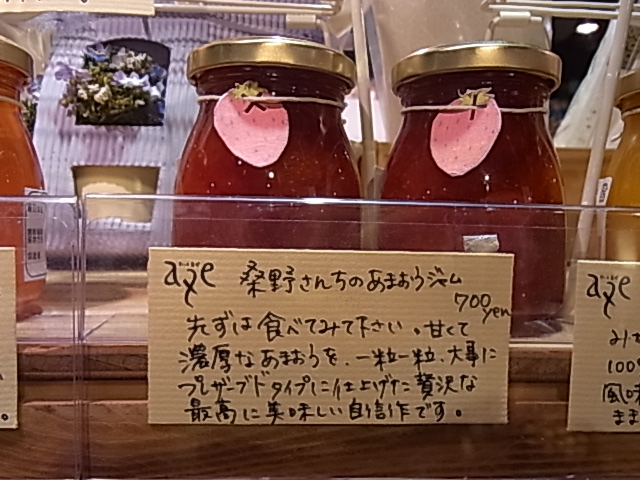 axe 桑野さんちのあまおうジャム
700yen
先ずは食べてみて下さい。甘くて
濃厚なあまおうを、一粒一粒、大事に
プレザーブドタイプに仕上げた贅沢な
最高に美味しい自信作です。
axe
100%
風味
まま